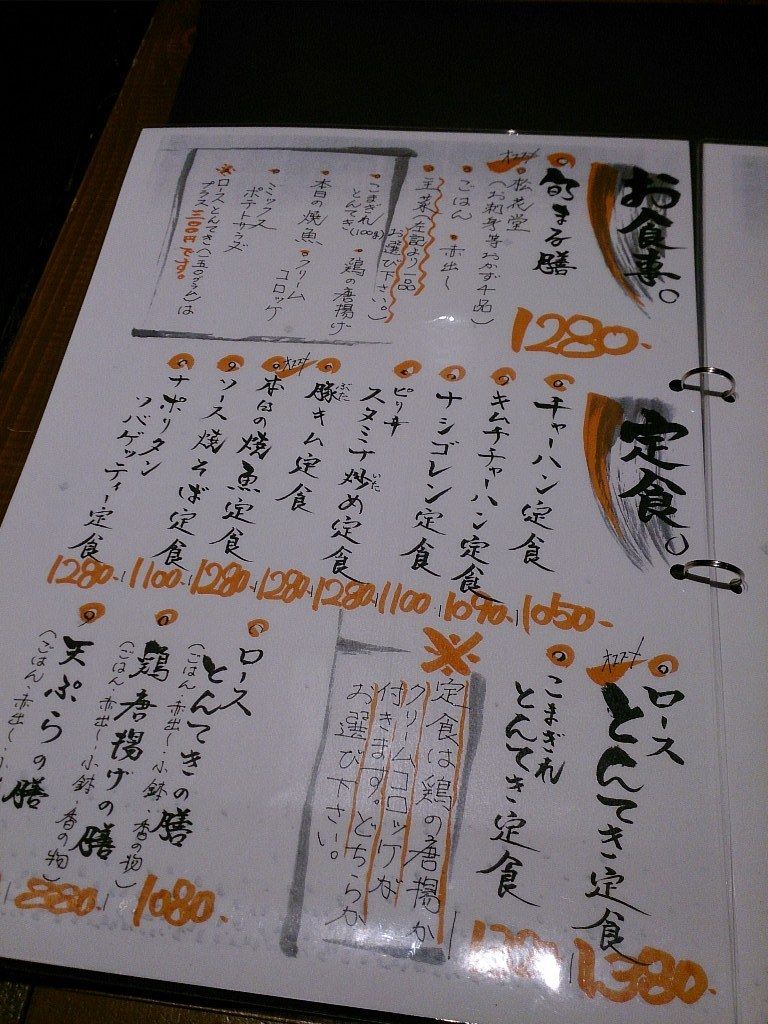 お食事。
オススメ
旬まる膳
1280-
・松花堂
(お刺身等おかず4品)
・ごはん ・赤出し
・主菜(左記より一品
お選び下さい。)
・こまぎれ
とんてき(100g)
・鶏の唐揚げ
・本日の焼魚
・クリーム
コロッケ
・ミックス
ポテトサラダ
※ロースとんてき(150グラム)は
プラス300円です。
定食。
チャーハン定食
1050-
キムチチャーハン定食
1090-
ナシゴレン定食
1100-
ピリ辛
スタミナ炒め定食
いた
1280-
オススメ
豚キム定食
ぶた
1280-
本日の焼魚定食
1280-
ソース焼そば定食
1100-
ナポリタン
スパゲッティー定食
1280-
オススメ
ロース
とんてき定食
1,380-
こまぎれ
とんてき定食
※
定食は鶏の唐揚か
クリームコロッケが
付きます。どちらか
お選び下さい。
ロース
とんてきの膳
(ごはん・赤出し・小鉢・香の物)
1080-
鶏唐揚げの膳
(ごはん・赤出し・小鉢・香の物)
880-
天ぷらの膳
(ごはん・赤出し